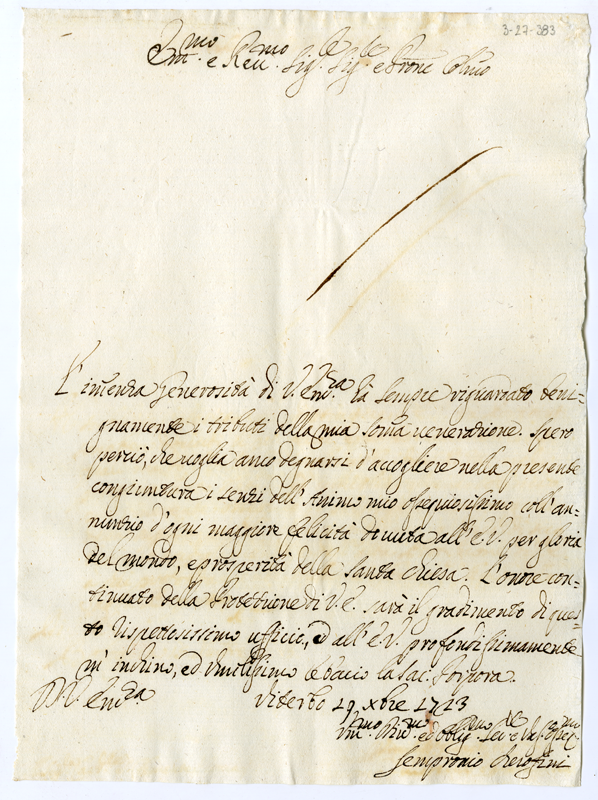 3-27-383
Em.mo e Rev.mo Sig.re Sig.re e Prone Colmo
L'imenza Generosità di V. Em.za hà sempre riguardato beni=
gnamente i tributi della mia soma venerazione. Spero
perciò, che voglia anco degnarsi d'accogliere nella presente
congiuntura i sensi dell'Animo mio ossequiosissimo coll'an=
nunzio d'ogni maggiore felicità dovuta all'E.V. per gloria
del mondo, e prosperità della Santa Chiesa. L'onore con=
tinuato della Protettione di V.E. sarà il gradimento di ques=
to rispettosissimo ufficio, ed all'E.V. profondissimamente
m'inchino, ed umilissimo le bacio la Sac. Porpora.
D. V. Em.za Viterbo 19 Xbre 1713
Um.mo Div.mo ed Obblig.mo
Sempronio